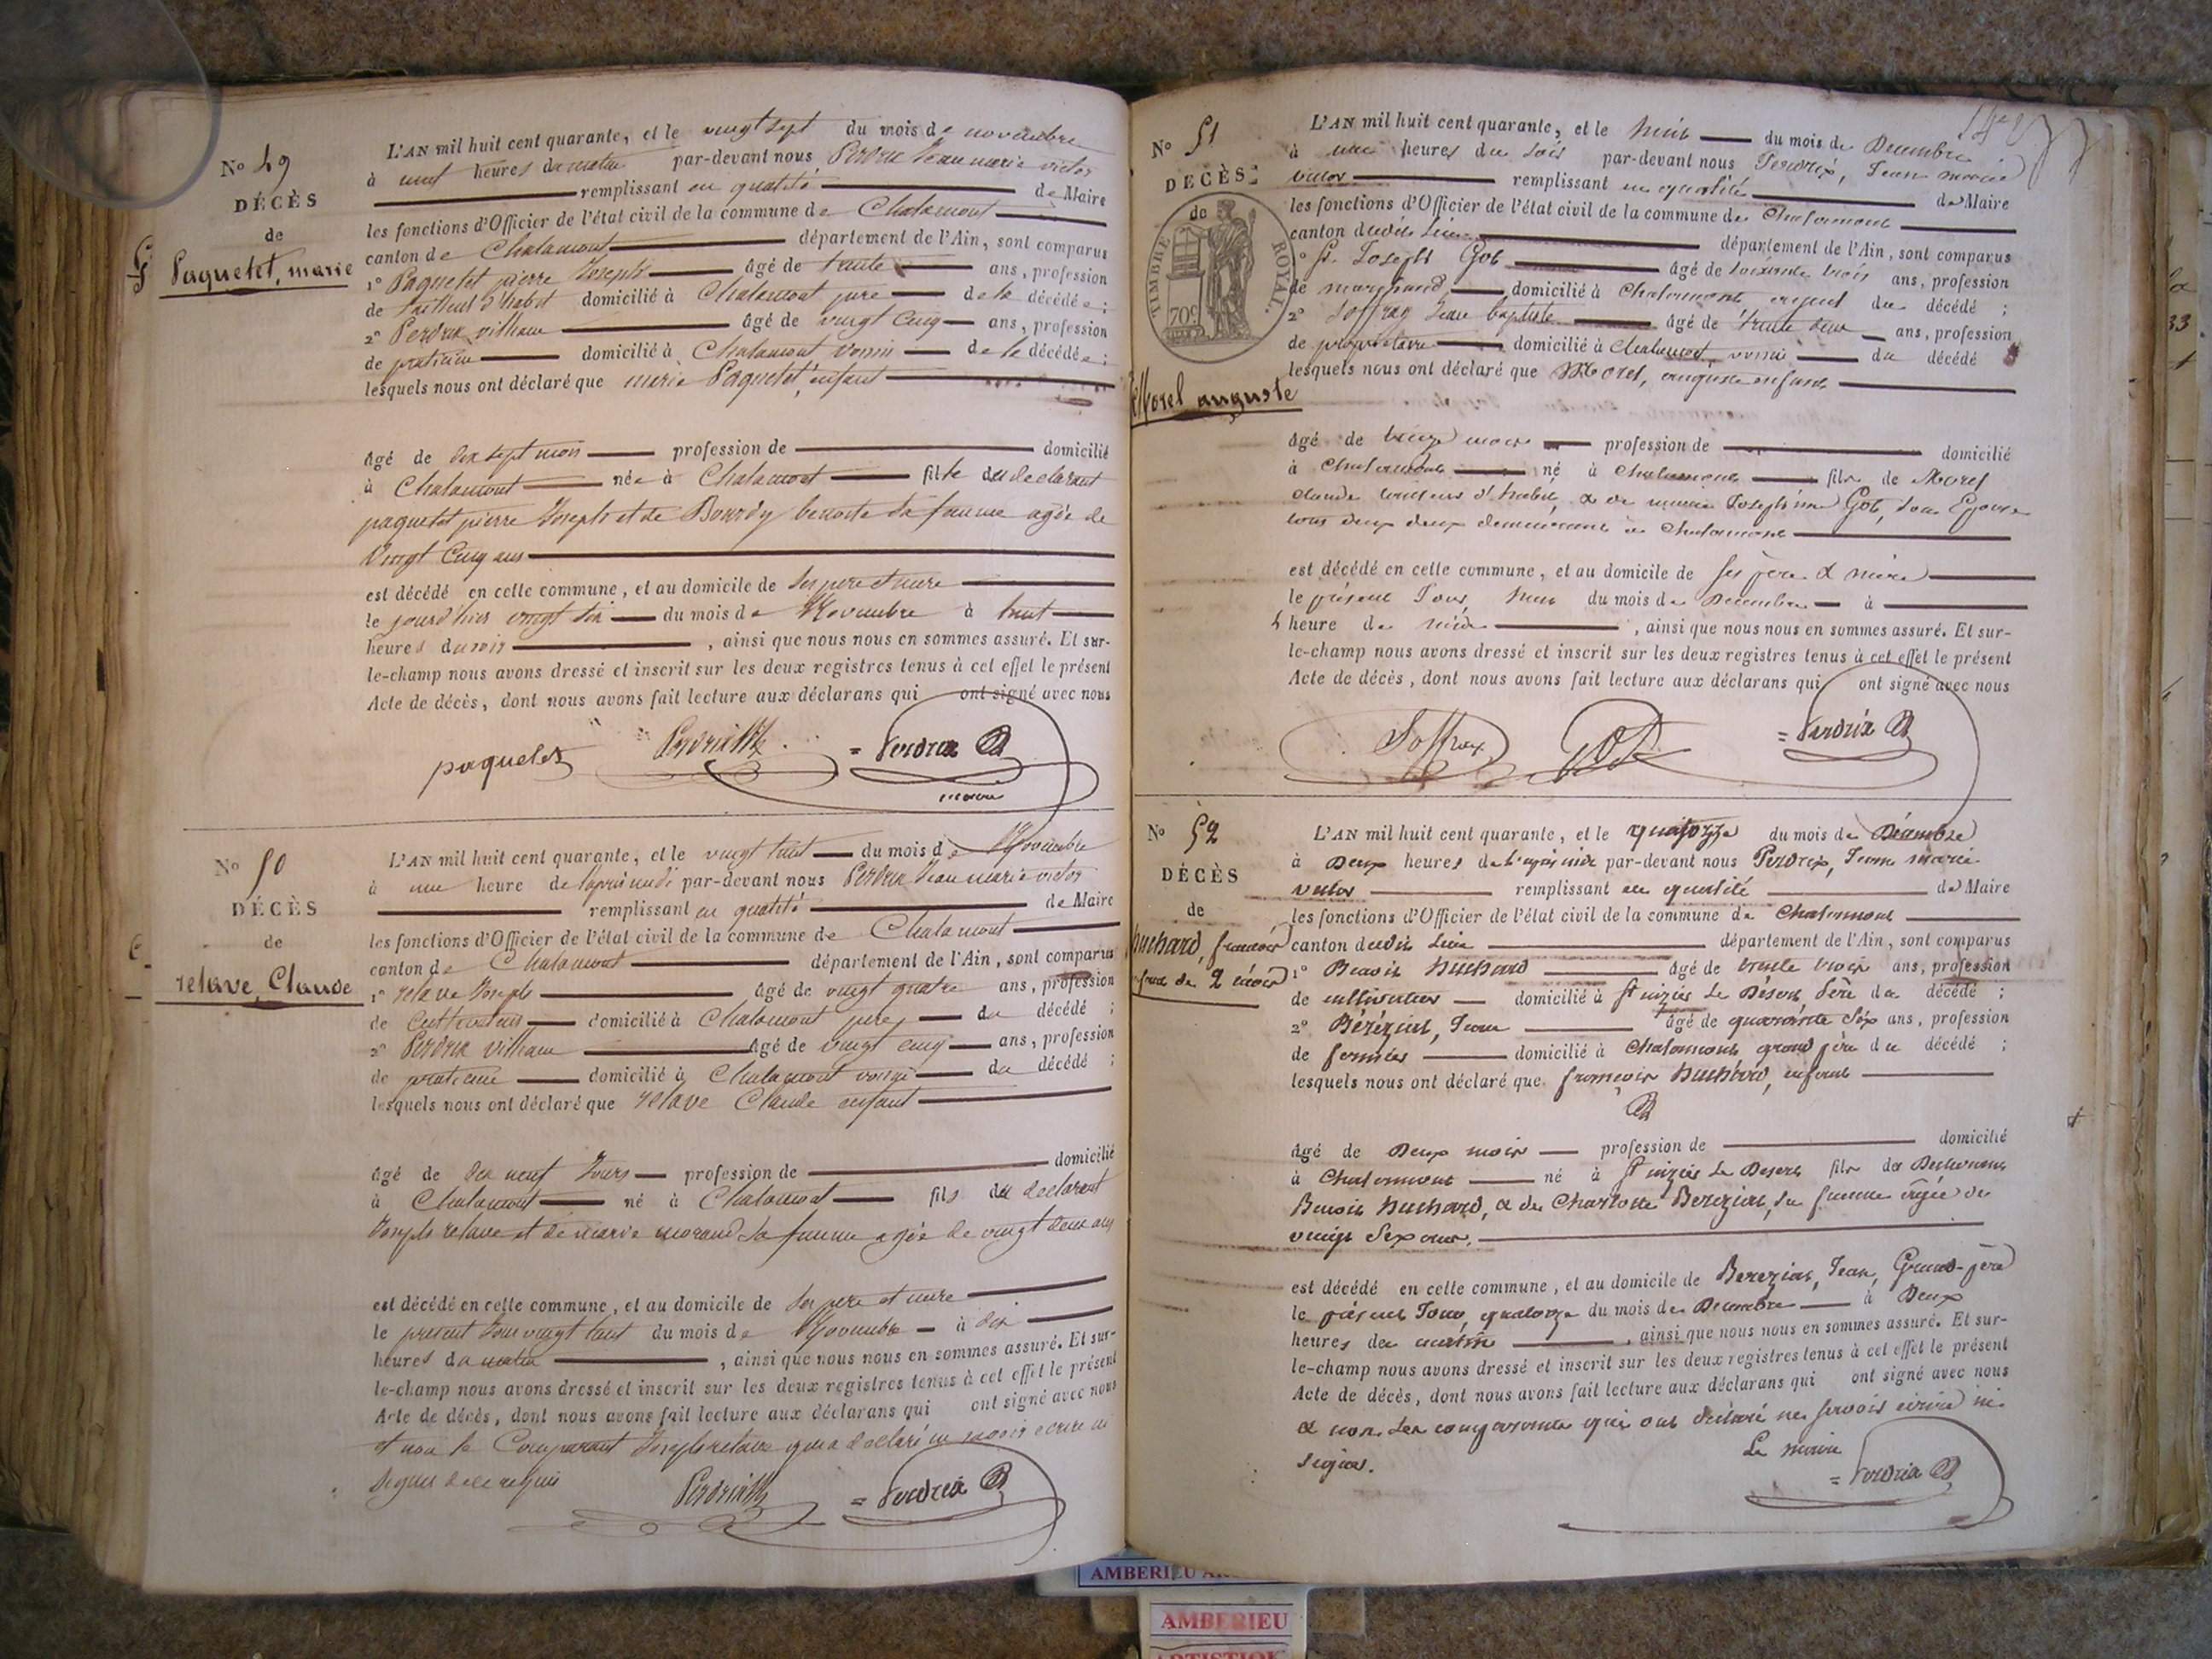 No 49
DÉCÈS
de
Paquetet, marie
L'AN mil huit cent quarante, et le vingt sept du mois de novembre
à neuf heures du matin par-devant nous Perdrix Jean marie victor
remplissant en qualité de Maire
les fonctions d'Officier de l'état civil de la commune de Chalamont
canton de Chalamont département de l'Ain, sont comparus
1° Paquetet pierre Joseph âgé de trente ans, profession
de tailleur d'habit domicilié à Chalamont pere de la décédée ;
2° Perdrix villiam âgé de vingt cinq ans, profession
de praticien domicilié à Chalamont voisin de la décédée ;
lesquels nous ont déclaré que marie Paquetet, enfant
âgé de dix sept mois profession de domicilié
à Chalamont née à Chalamont fille du declarant
paquetet pierre Joseph et de Bourdy benoite sa femme agée de
vingt cinq ans
est décédé en cette commune, et au domicile de ses pere et mere
le jourd'hier vingt six du mois de Novembre à huit
heures du soir , ainsi que nous nous en sommes assuré. Et sur-
le-champ nous avons dressé et inscrit sur les deux registres tenus à cet effet le présent
Acte de décès, dont nous avons fait lecture aux déclarans qui ont signé avec nous
paquetet Perdrix = Perdrix
maire
No 50
DÉCÈS
de
relave, Claude
L'AN mil huit cent quarante, et le vingt huit du mois de Novembre
à une heure de l'apres midi par-devant nous Perdrix Jean marie victor
remplissant en qualité de Maire
les fonctions d'Officier de l'état civil de la commune de Chalamont
canton de Chalamont département de l'Ain, sont comparus
1° relave Joseph âgé de vingt quatre ans, profession
de Cultivateur domicilié à Chalamont pere du décédé ;
2° Perdrix villiam âgé de vingt cinq ans, profession
de praticien domicilié à Chalamont voisin du décédé ;
lesquels nous ont déclaré que relave Claude enfant
âgé de dix neuf Jours profession de domicilié
à Chalamont né à Chalamont fils du declarant
Joseph relave et de marie morand sa femme agée de vingt deux ans
est décédé en cette commune, et au domicile de ses pere et mere
le present Jour vingt huit du mois de Novembre à dix
heures du matin , ainsi que nous nous en sommes assuré. Et sur-
le-champ nous avons dressé et inscrit sur les deux registres tenus à cet effet le présent
Acte de décès, dont nous avons fait lecture aux déclarans qui ont signé avec nous
et non le Comparant Joseph relave qui a declaré ne savoir ecrire ni
signer de ce requis
Perdrix = Perdrix
No 51
DÉCÈS
de
TIMBRE ROYAL.
70c
Morel auguste
L'AN mil huit cent quarante, et le huit du mois de Decembre
à une heures du soir par-devant nous Perdrix, Jean marie
victor remplissant en qualité de Maire
les fonctions d'Officier de l'état civil de la commune de Chalamont
canton dudit lieu département de l'Ain, sont comparus
1° Joseph Got âgé de soixante trois ans, profession
de marchand domicilié à Chalamont, ayeul du décédé ;
2° Soffray Jean baptiste âgé de trente deux ans, profession
de propriétaire domicilié à Chalamont, voisin du décédé
lesquels nous ont déclaré que Morel, auguste enfant
âgé de treize mois profession de domicilié
à Chalamont né à Chalamont fils de Morel
claude tailleur d'habit, & de marie Joséphine Got, son Epouse
tous deux deux demeurant à Chalamont
est décédé en cette commune, et au domicile de ses père & mère
le présent Jour, huit du mois de Decembre à
heure de midi , ainsi que nous nous en sommes assuré. Et sur-
le-champ nous avons dressé et inscrit sur les deux registres tenus à cet effet le présent
Acte de décès, dont nous avons fait lecture aux déclarans qui ont signé avec nous
Soffray GOT = Perdrix
No 52
DÉCÈS
de
huchard, francois
de 2 mois
L'AN mil huit cent quarante, et le quatorze du mois de Décembre
à Deux heures de l'après midi par-devant nous Perdrix, Jean marie
victor remplissant en qualité de Maire
les fonctions d'Officier de l'état civil de la commune de Chalamont
canton dudit lieu département de l'Ain, sont comparus
1° Benoit huchard âgé de trente trois ans, profession
de cultivateur domicilié à St nizier Le Désert Père du décédé ;
2° Béréziat, Jean âgé de quarante six ans, profession
de fermier domicilié à Chalamont grand père du décédé ;
lesquels nous ont déclaré que françois huchard, enfant
âgé de Deux mois profession de domicilié
à Chalamont né à St nizier Le Desert fils de
Benoit huchard, & de Charlotte Bereziat, sa femme âgée de
vingt Six ans.
est décédé en cette commune, et au domicile de Bereziat, Jean, Grand-père
le présent Jour, quatorze du mois de Decembre à Deux
heures du matin , ainsi que nous nous en sommes assuré. Et sur-
le-champ nous avons dressé et inscrit sur les deux registres tenus à cet effet le présent
Acte de décès, dont nous avons fait lecture aux déclarans qui ont signé avec nous
& non les comparants qui ont déclaré ne savoir écrire ni
signer.
Le maire
= Perdrix
AMBERIEU
AMBERIEU